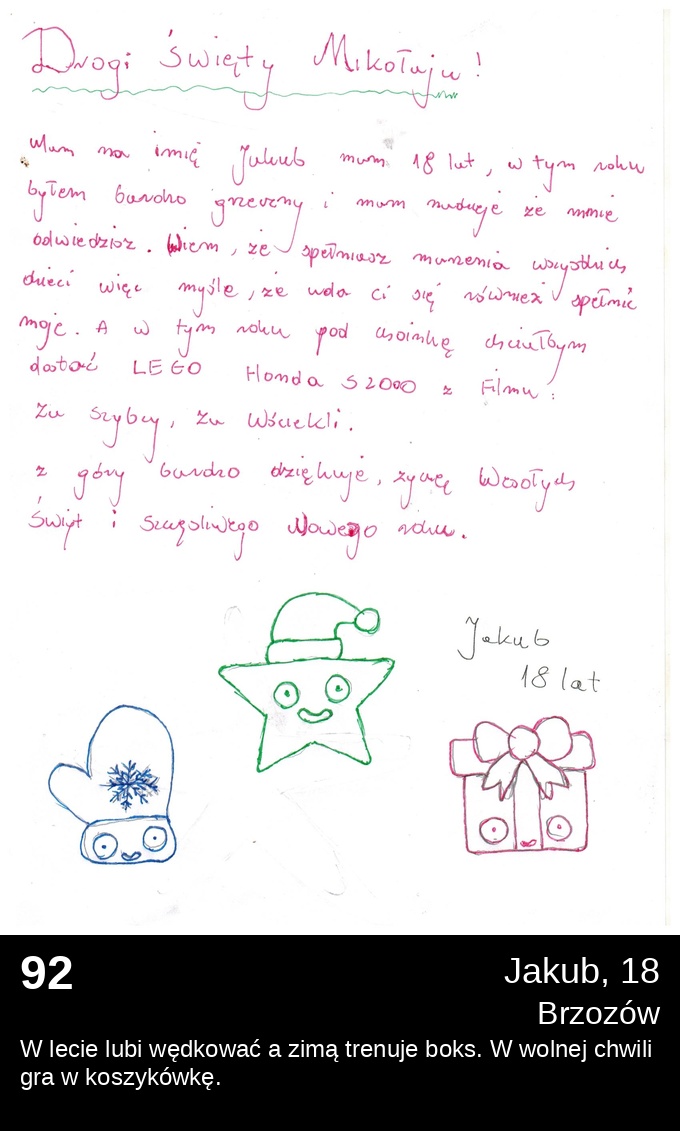 Drogi święty Mikołaju!
Mam na imię Jakub mam 18 lat, w tym roku
byłem bardzo grzeczny i mam nadzieje że mnie
odwiedzisz. Wiem, że spełniasz marzenia wszystkich
dzieci więc myśle, że uda ci się również spełnić
moje. A w tym roku pod choinkę chciałbym
dostać LEGO Honda S2000 z Filmu:
Za szybcy, za wściekli.
z góry bardzo dziękuje, życzę Wesołych
Świąt i szczęśliwego Nowego roku.
Jakub
18 lat
92
Jakub, 18
Brzozów
W lecie lubi wędkować a zimą trenuje boks. W wolnej chwili
gra w koszykówkę.